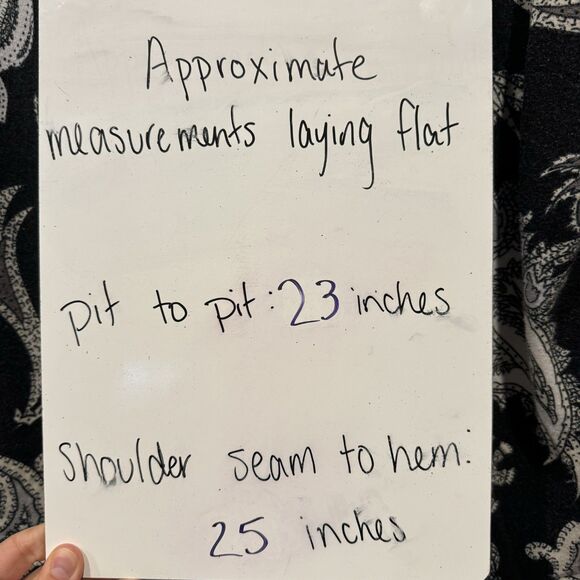 Approximate
measurements laying flat
pit to pit: 23 inches
Shoulder seam to hem:
25 inches